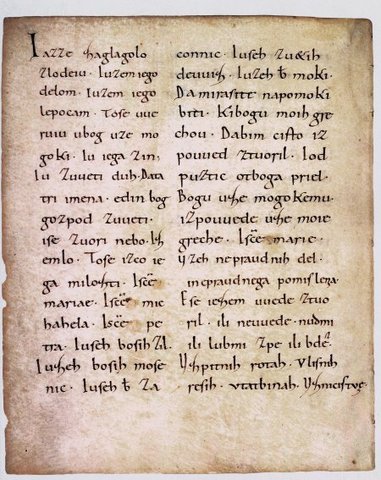 Iazze zaglagolo
zlodeiu. Iuzem iego
delom. Iuzem iego
lepocam. Tose uue
ruiu ubog uze mo
goki. Iu iega zin,
Iu zuueti duh. Data
tri imena. edin bog
gozpod zuueti.
ise zuori nebo. Izh
emlo. Tose izco ie
ga milozti. Iscē
mariae. Iscē mic
hahela. Iscē pe
tra. Iuseh bosih zil.
Iuzheh bosih mose
nic. Iuseh ƀ za
connic. Iuseh zu&ih
deuuiz. Iuzeh ƀ moki.
Da mirasite napomoki
biti. Kibogu moih gre
chou. Dabim cisto iz
pouued ztuoril. Iod
puztic otboga priel.
Bogu uzhe mogokemu.
izpouuede uzhe moie
greche. Iscē marie.
Vzeh nepraudnih del.
inepraudnega pomislena.
Ese iezem uuede ztuo
ril. ili neuuede. nudmi
ili lubmi zpe ili bdē.
Vzhpitnih rotah. Vlisnih
resih. Vtatbinah. Vzhmcistue.